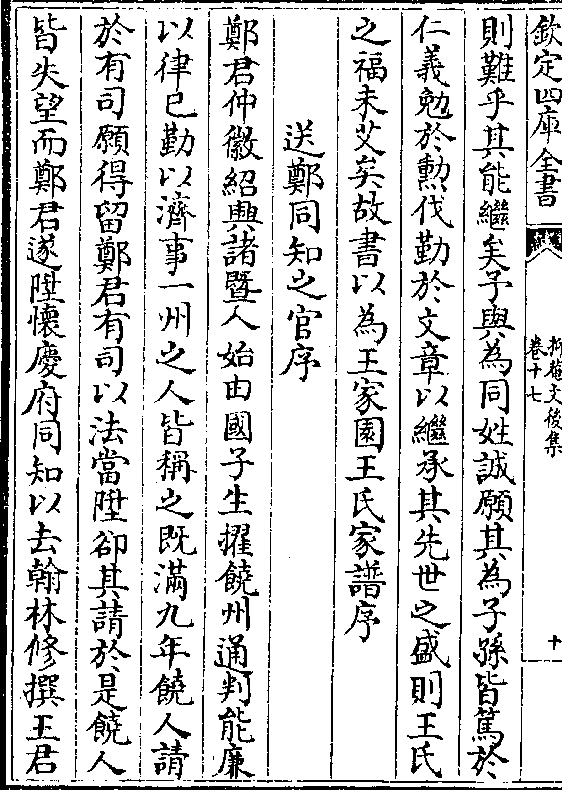 欽定四庫全書
抑菴文後集
卷十七
十
則難乎其能繼矣予與為同姓誠願其為子孫皆篤於
仁義勉於勲伐勤於文章以繼承其先世之盛則王氏
之福未艾矣故書以為王家園王氏家譜序
送鄭同知之官序
鄭君仲徽紹興諸暨人始由國子生擢饒州通判能廉
以律已勤以濟事一州之人皆稱之既滿九年饒人請
於有司願得留鄭君有司以法當陞卻其請於是饒人
皆失望而鄭君遂陞懷慶府同知以去翰林修撰王君